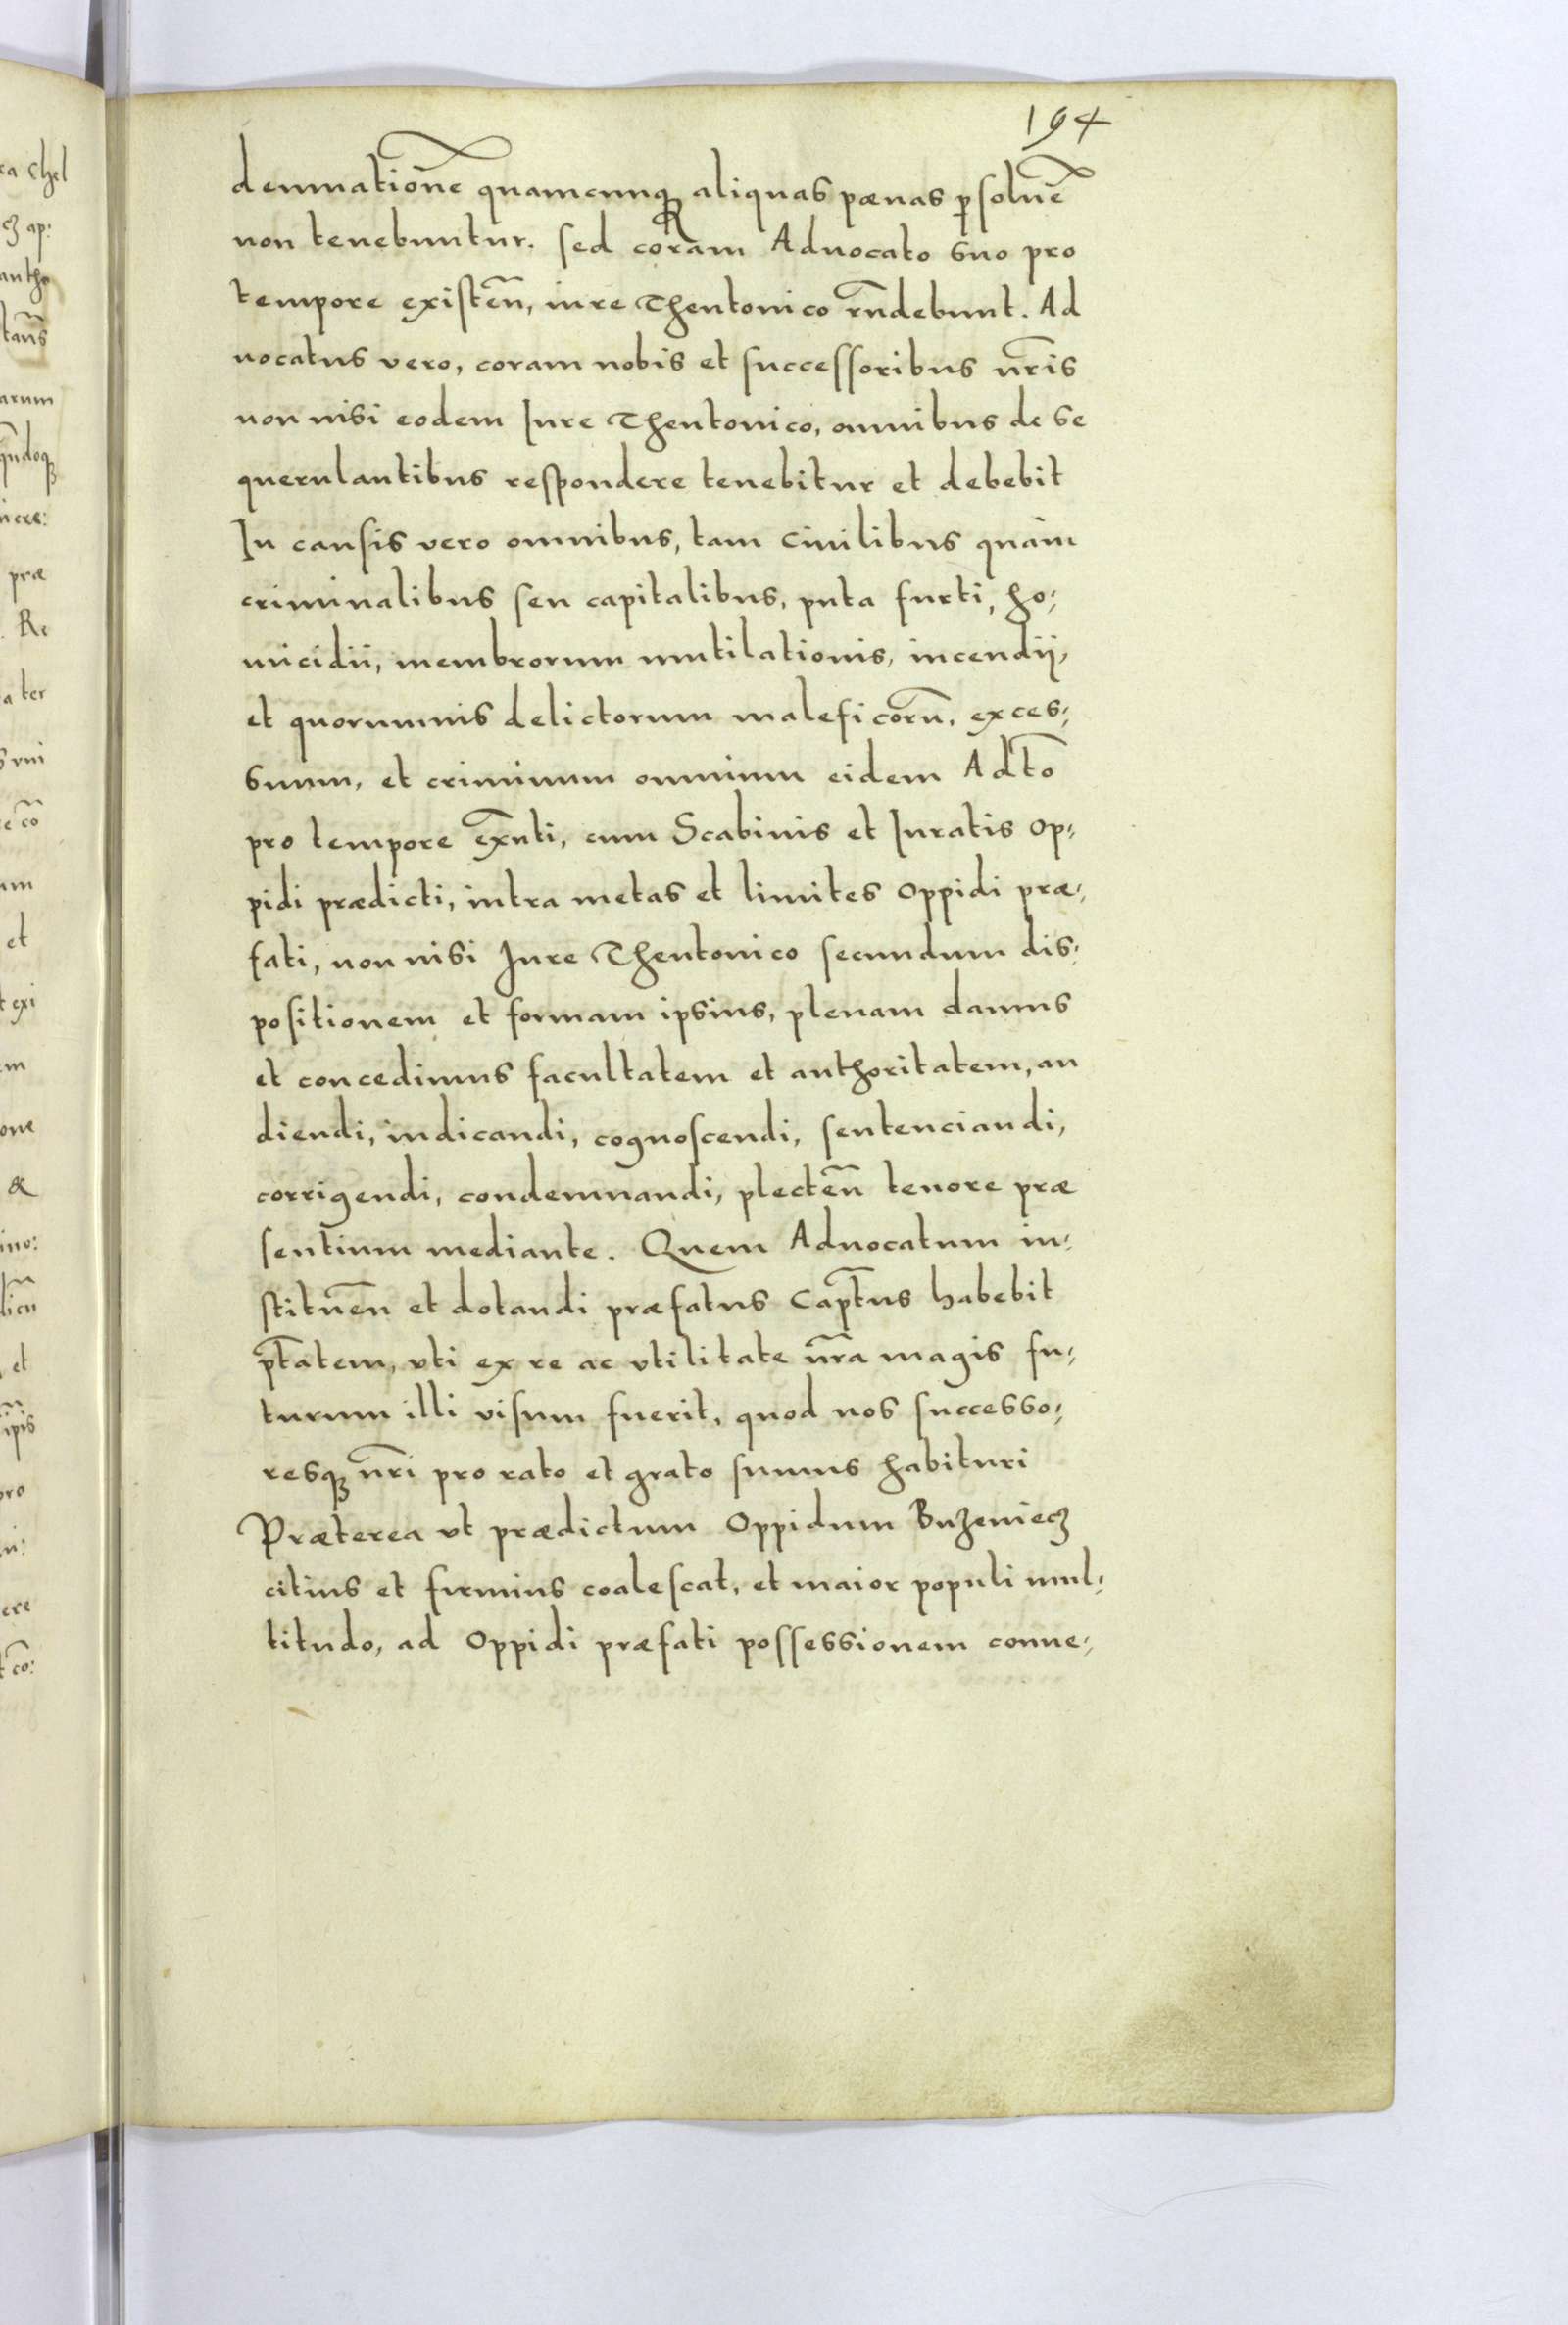 194
demnatione̅ quamcunq aliquas pœnas psolue̅
non tenebuntur. sed coram Aduocato suo pro
tempore existen̅, iure Theutonico rn̅debunt. Ad
uocatus vero, coram nobis et successoribus nr̅is
non nisi eodem Iure Theutonico, omnibus de se
querulantibus respondere tenebitur et debebit
In causis vero omnibus, tam ciuilibus quàm
criminalibus seu capitalibus, puta furti, ho:
micidii, membrorum mutilationis, incendij,
et quorumuis delictorum maleficoru̅, exces:
suum, et criminum omnium eidem Adto̅
pro tempore ex̅nti, cum Scabinis et Iuratis op:
pidi prædicti, intra metas et limites oppidi præ:
fati, non nisi Iure Theutonico secundum dis:
positionem et formam ipsius, plenam damus
et concedimus facultatem et authoritatem, au
diendi, iudicandi, cognoscendi, sentenciandi,
corrigendi, condemnandi, plecten̅ tenore præ
sentium mediante. Quem Aduocatum in:
stituen̅ et dotandi præfatus Capt̅us habebit
pt̅atem, vti ex re ac vtilitate nr̅a magis fu:
turum illi visum fuerit, quod nos successo:
resq nr̅i pro rato et grato sumus habituri
Præterea vt prædictum Oppidum Buzeniecz
citius et firmius coalescat, et maior populi mul:
titudo, ad Oppidi præfati possessionem conue: